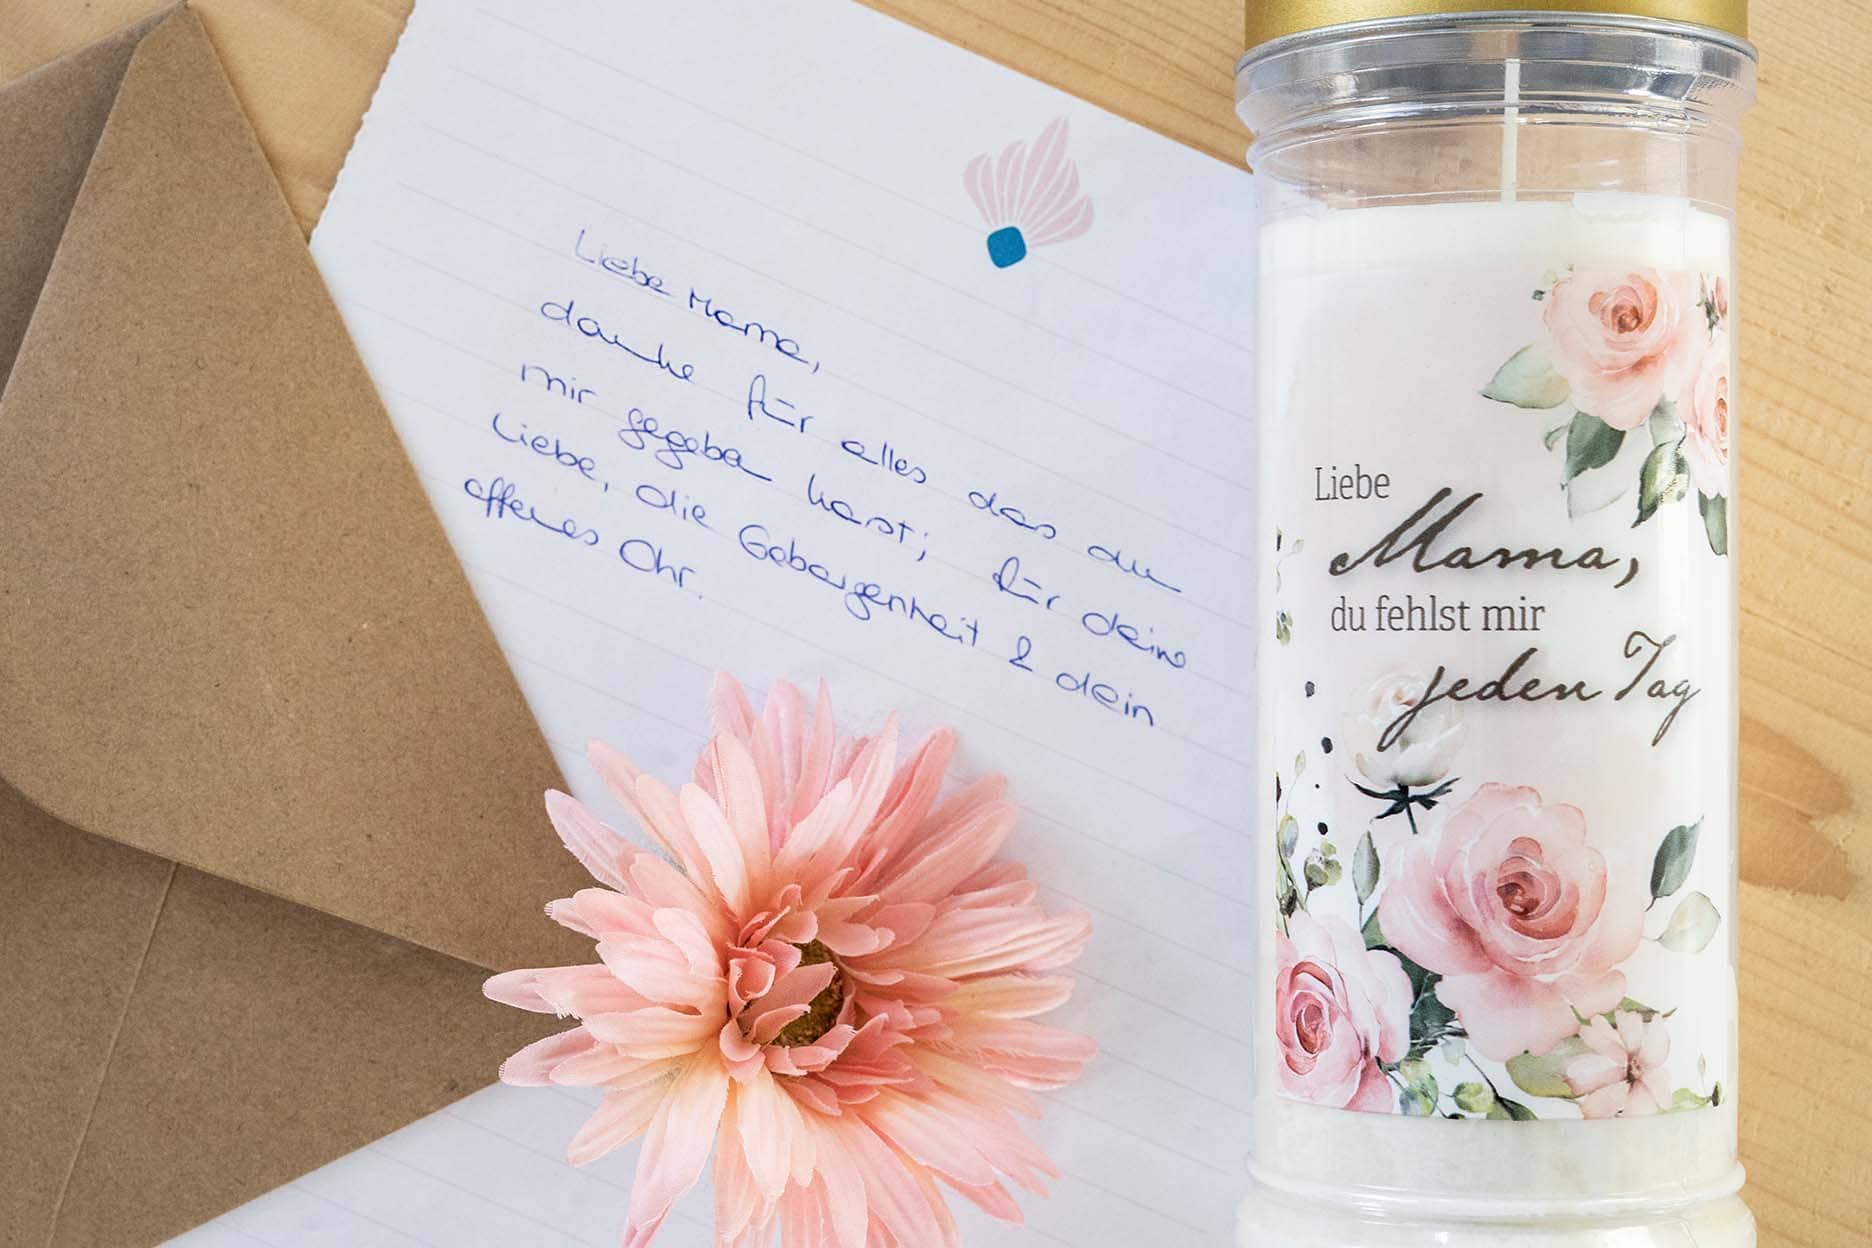 Liebe Mama,
danke für alles das du
mir gegeben hast; für deine
Liebe, die Geborgenheit & dein
offenes Ohr.
Liebe
Mama,
du fehlst mir
jeden Tag